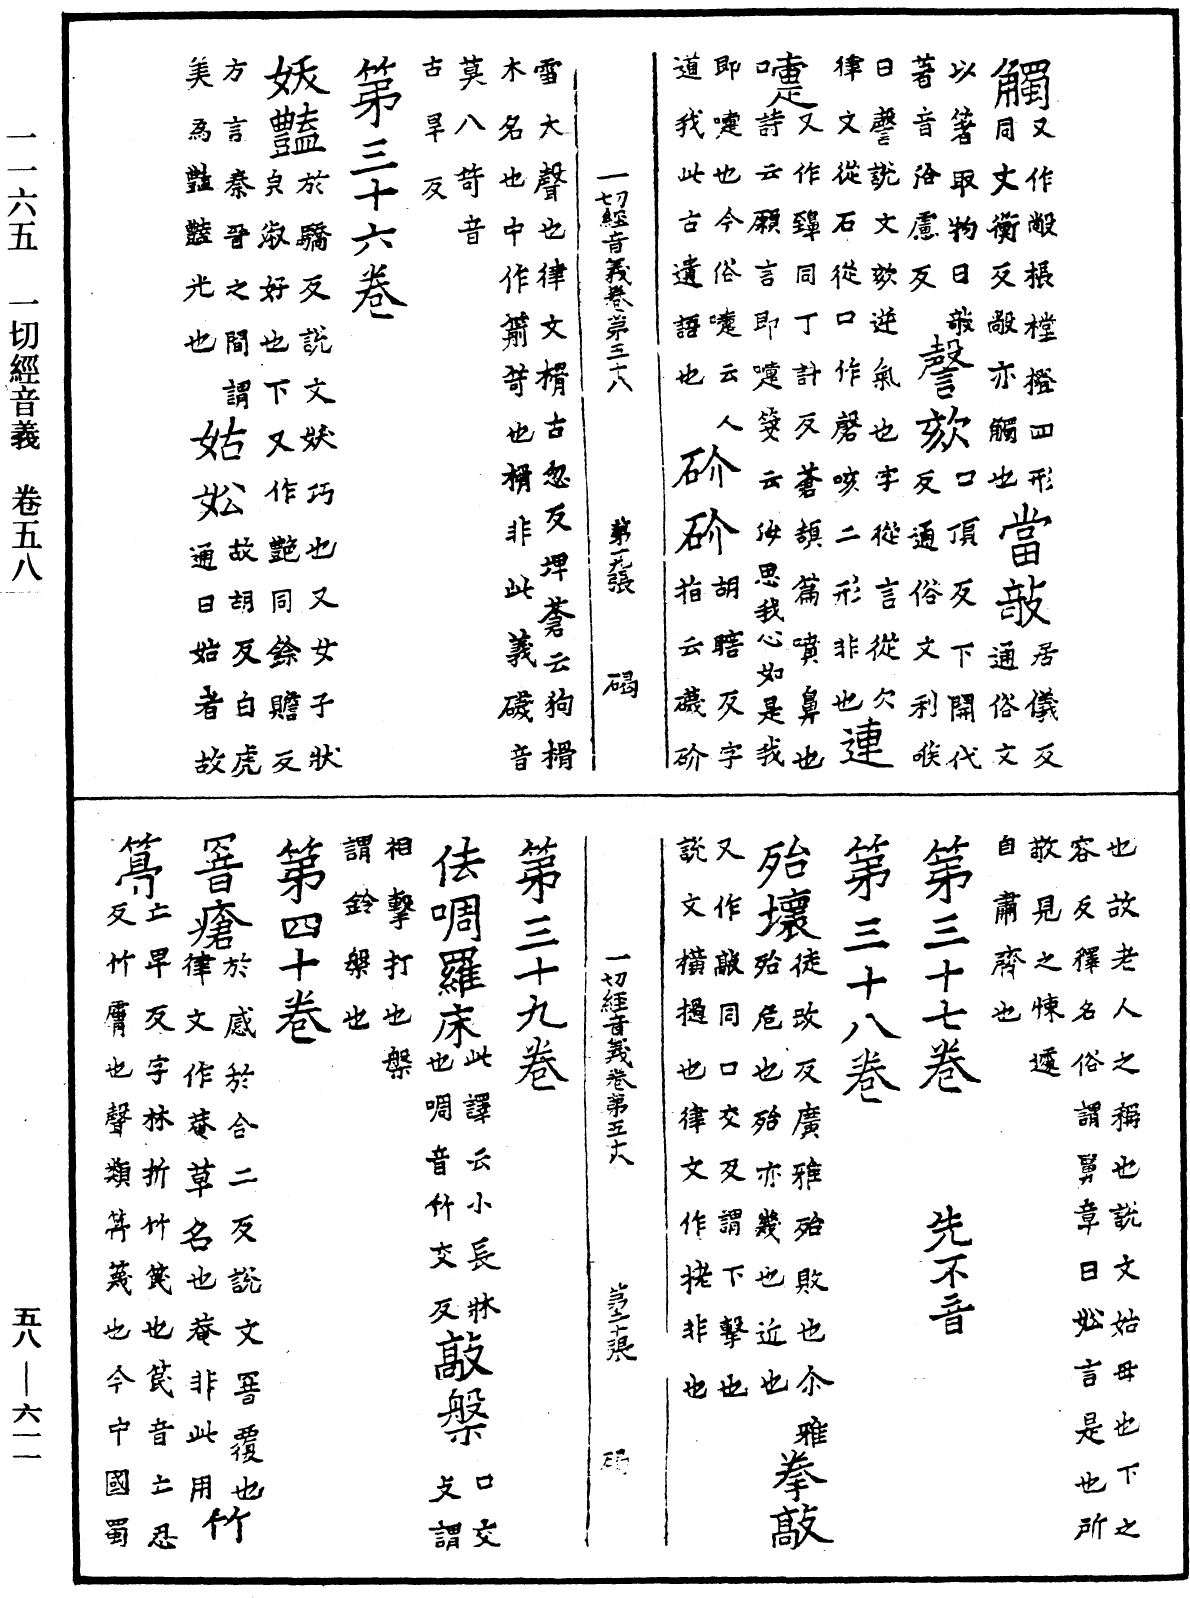 觸又作敞棖樘橙四形
同丈衡反敞亦觸也當敧居儀反通俗文
以箸取物曰敧
著音治慮反謦欬口頂反下開代反通俗文利喉
曰謦說文欬逆氣也字從言從欠
律文從石從口作磬咳二形非也連
嚏又作鞮同丁計反蒼頡篇嚏噴鼻也
詩云願言即嚏箋云汝思我心如是我
即嚏也今俗嚏云人
道我此古遺語也砎砎胡瞎反字指云礣砎
一切經音義卷第五十八 第十九張 碣
雷大聲也律文榾古忽反埤蒼云狗榾
木名也中作箭笴也榾非此義礣音
莫八反笴音
古旱反
第三十六卷
妖豔於驕反說文妖巧也又女子狀
皃淑好也下又作艷同餘贍反
方言秦晉之間謂
美為豔豔光也姑妐故胡反白虎通曰姑者故
也故老人之稱也說文姑母也下之
容反釋名俗謂舅章曰妐言是也所
敬見之悚遽
自肅齊也
第三十七卷 先不音
第三十八卷
殆壞徒改反廣雅殆敗也尒雅
殆危也殆亦幾也近也拳敲
又作敲同口交反謂下擊也
說文橫撾也律文作挬非也
一切經音義卷第五十八 第二十張 碣
第三十九卷
佉啁羅床此譯云小長牀
也啁音竹交反敲槃口交反謂
相擊打也槃
謂鈴槃也
第四十卷
罯瘡於感於合二反說文罯覆也
律文作菴草名也菴非此用竹
笴亡旱反字林折竹笢也笢音亡忍
反竹膚也聲類笴篾也今中國蜀
一一六五 一切經音義 卷五八
五八—六一一